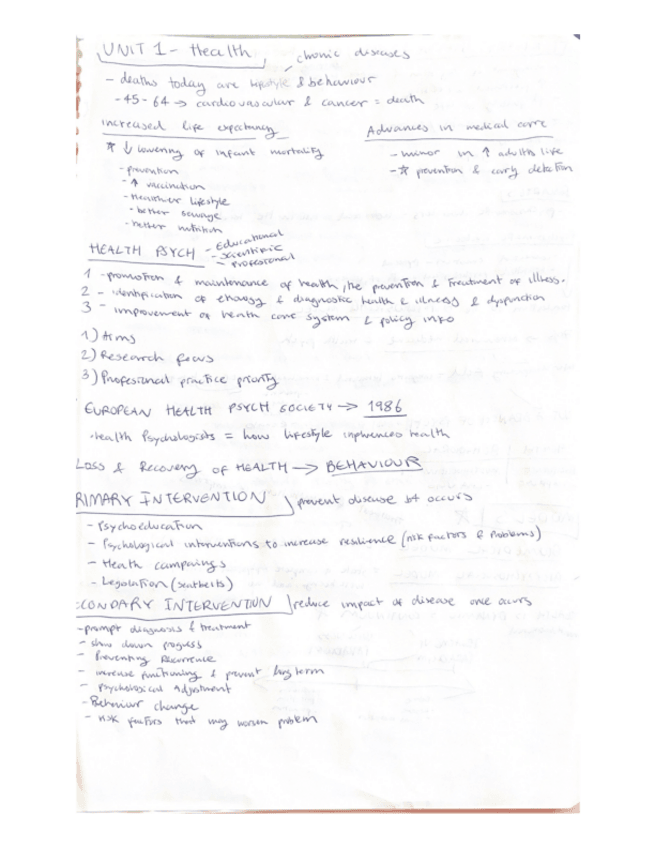 UNIT 1 - Health
chronic diseases
- deaths today are lifestyle & behaviour
- 45 - 64 → cardiovascular & cancer = death
increased life expectancy
↓ lowering of infant mortality
- prevention
- ↑ vaccination
- Healthier lifestyle
- better sewage
- better nutrition
Advances in medical care
- minor in ↑ adults life
- prevention & early detection
HEALTH PSYCH
- Educational
- scientific
- professional
1 - promotion & maintenance of health, the prevention & treatment of illness.
2 - identification of & diagnostic health & illness & dysfunction
3 - improvement of health care system & policy info
1) Aims
2) Research focus
3) Profesional practice priority
EUROPEAN HEALTH PSYCH SOCIETY → 1986
· health Psychologists = how lifestyle influences health
LOSS & RECOVERY OF HEALTH → BEHAVIOUR
RIMARY INTERVENTION prevent disease occurs
- Psychoeducation
- Psychological interventions to increase resilience (risk factors & problems)
- Health campaings
- Legslation (seatbelts)
CONDARY INTERVENTION reduce impact of disease once occurs
- prompt diagnosis & treatment
- slow down progress
- Preventing Recurrence
- increase functioning & prevent long term
- Psychological Adjustment
- Behaviour change
- risk factors that may worsen problem